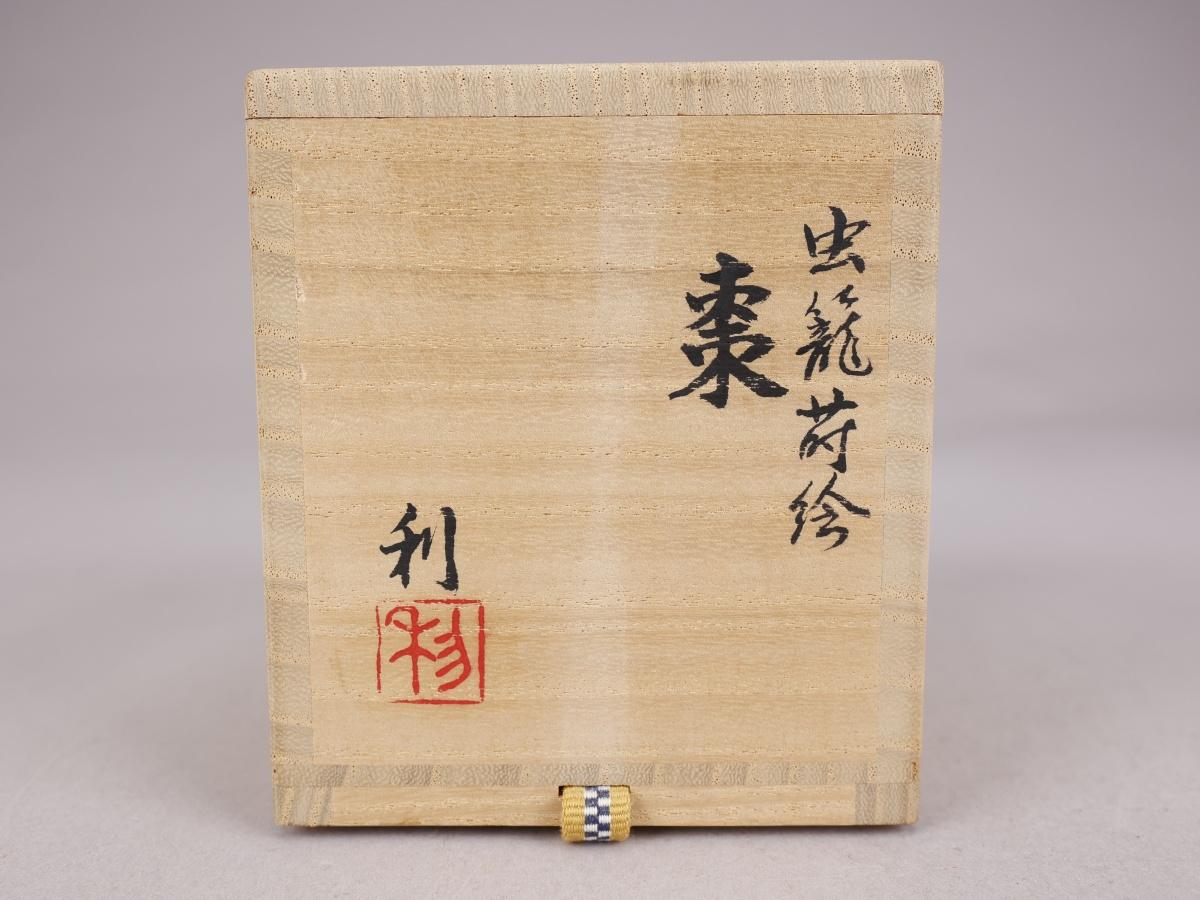 虫籠蒔絵
棗
利
利